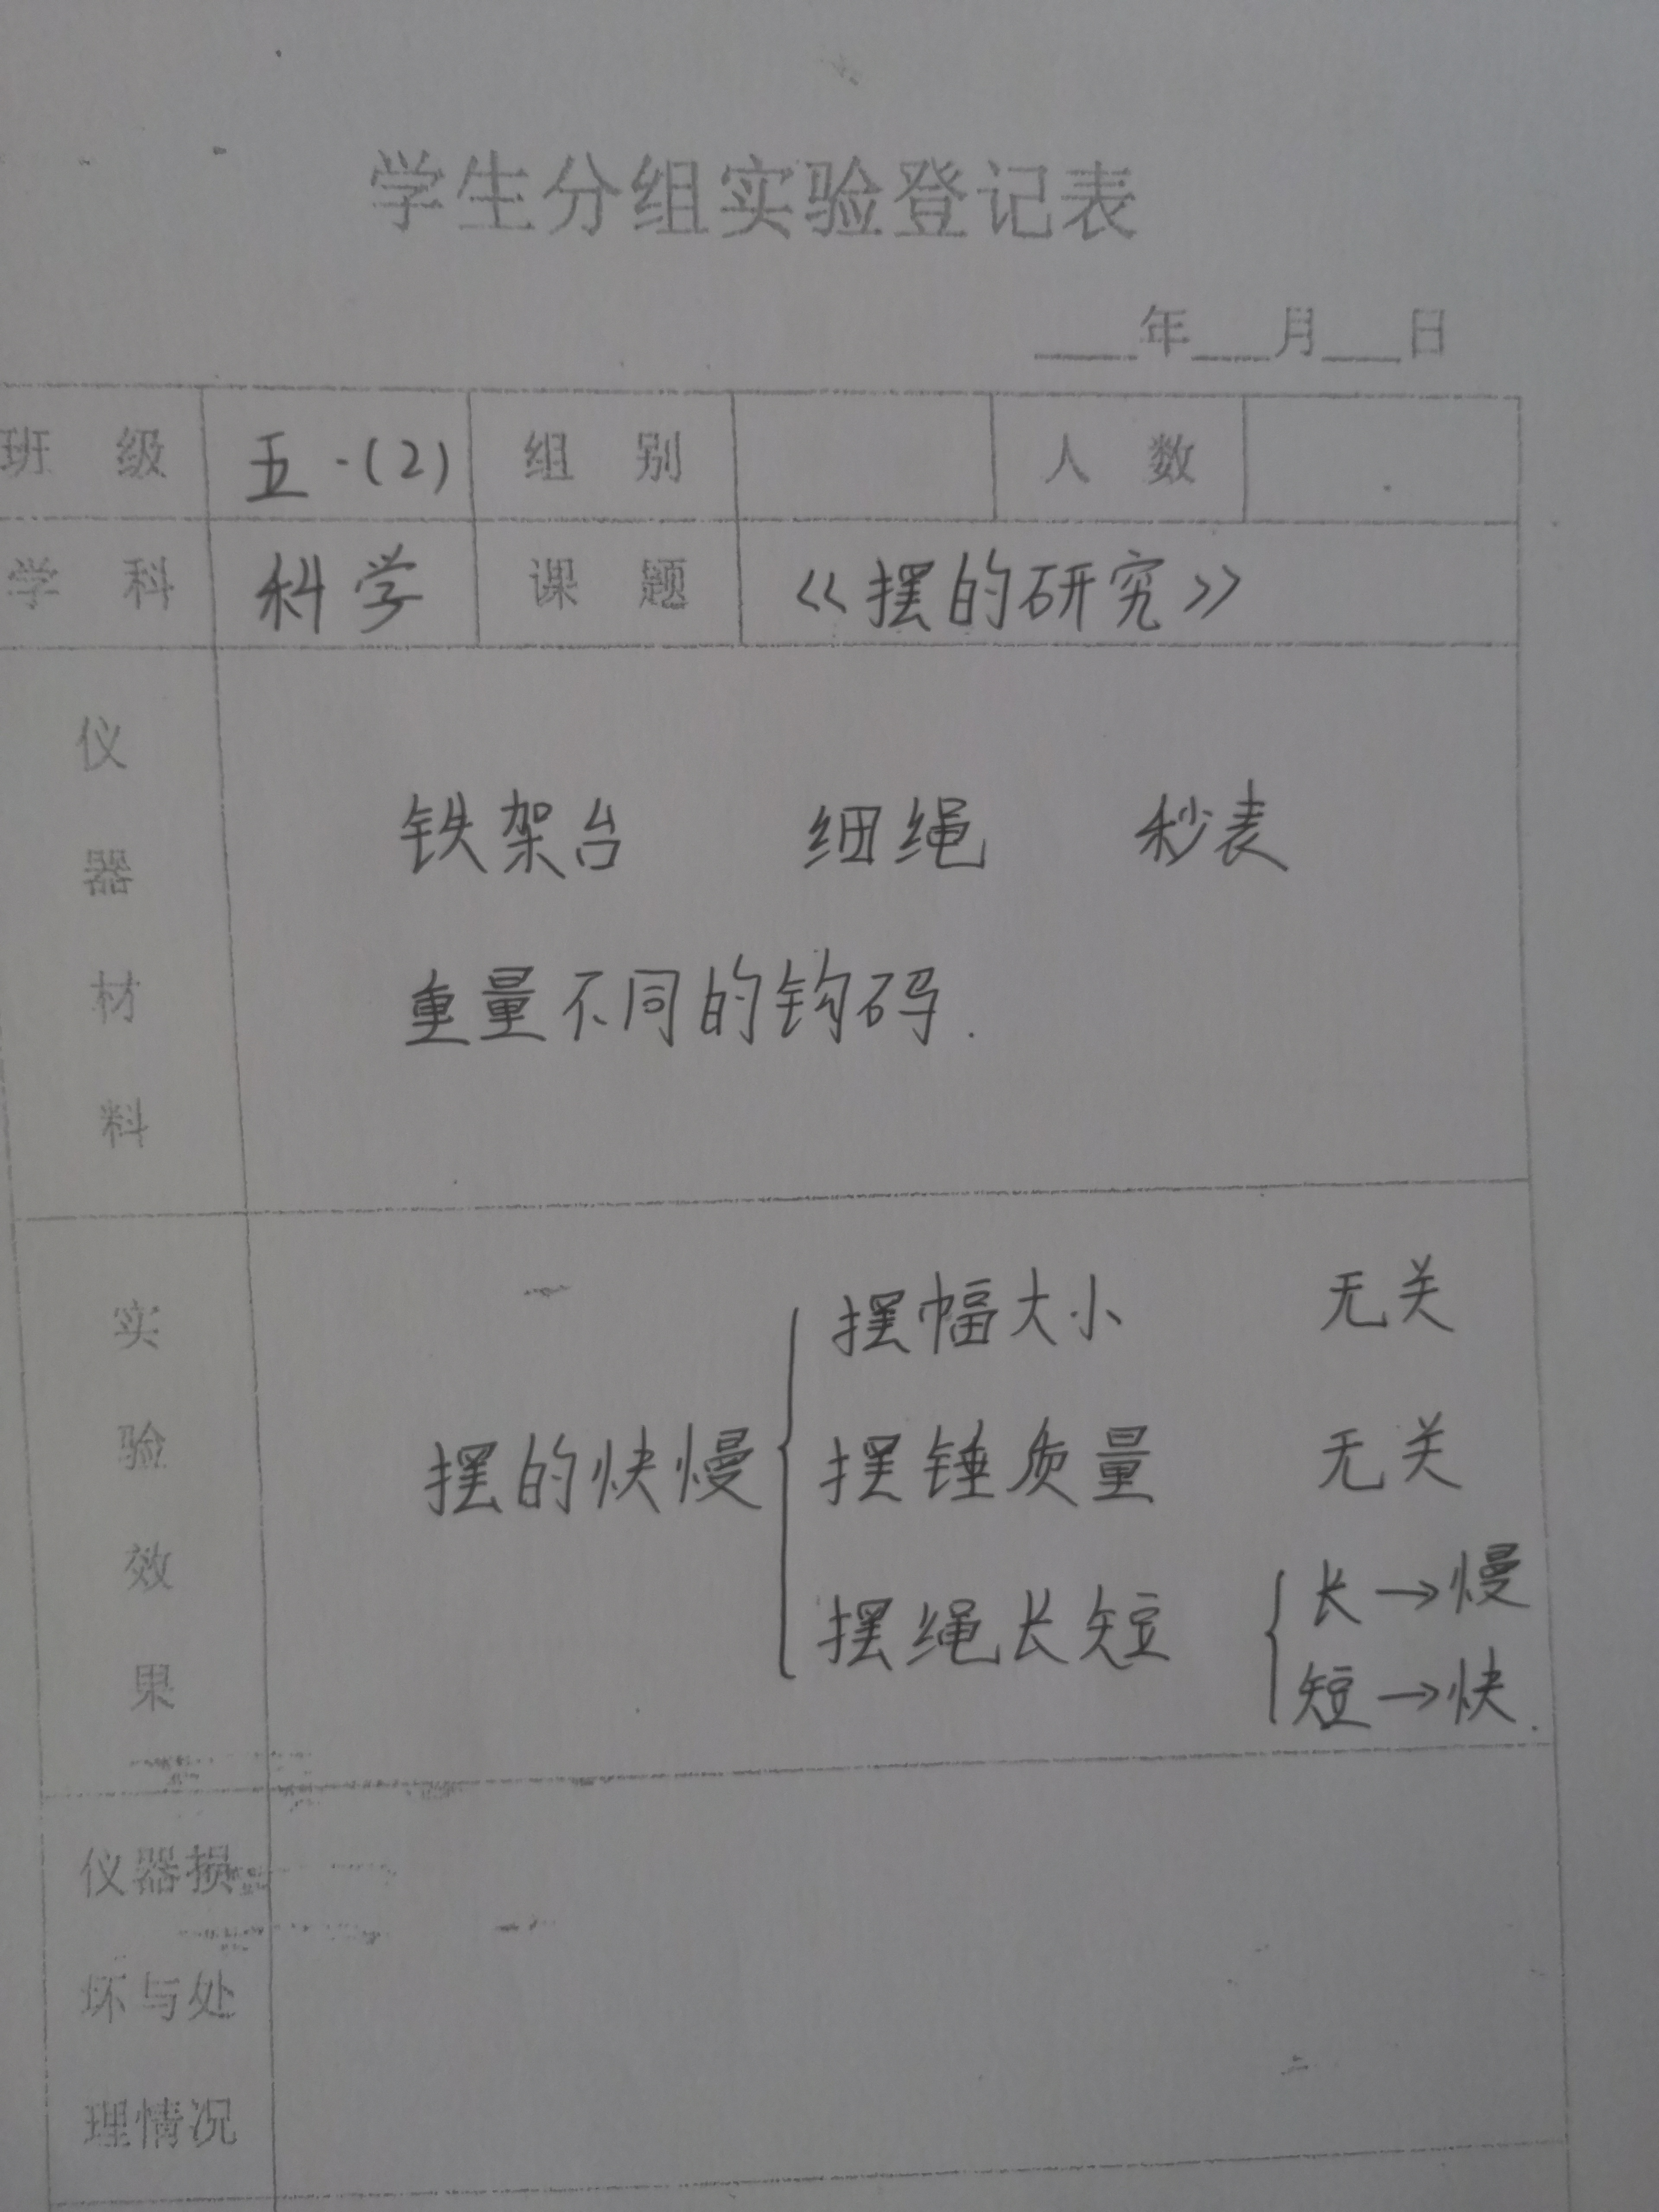 学生分组实验登记表
____年___月___日
班 级 五·(2) 组 别 人 数
学 科 科学 课 题 《摆的研究》
仪器材料
铁架台 细绳 秒表
重量不同的钩码.
实验效果
摆的快慢
摆幅大小 无关
摆锤质量 无关
摆绳长短
长→慢
短→快.
仪器损
坏与处
理情况